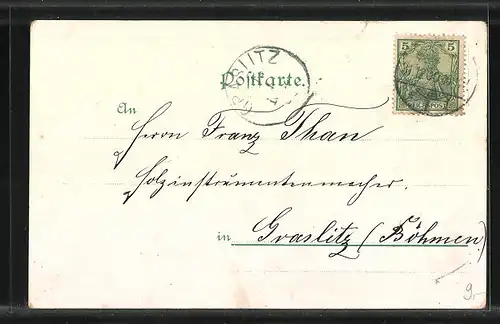 GRASLITZ
Postkarte.
5 5
An
Herrn Franz Than
Holzinstrumentenmacher.
in Graslitz (Böhmen)
9.-